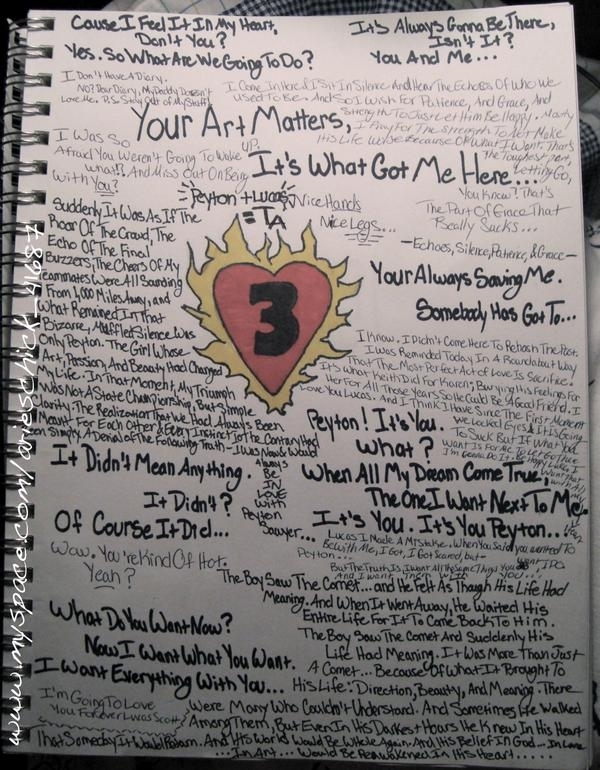 Cause I Feel It In My Heart,
Don't You?
Yes. So What Are We Going To Do?
It's Always Gonna Be There,
Isn't It?
You And Me...
I Don't Have A Diary.
No? Dear Diary, My Daddy Doesn't
Love Me. P.S. Stay Out Of My Stuff!
I Come In Here & I Sit In Silence And Hear The Echoes Of Who We
Used To Be. And So I Wish For Patience, And Grace, And
Strength To Just Let Him Be Happy. Mostly
I Pray For The Strength To Not Make
His Life Worse Because Of What I Want. That's
The Toughest Part,
Letting Go,
You Know? That's
The Part Of Grace That
Really Sucks...
-Echoes, Silence, Patience, & Grace-
Your Art Matters,
It's What Got Me Here...
I Was So
Afraid You Weren't Going To Wake
Up,
What!? And Miss Out On Being
With You?
Peyton + Lucas
= TA
Nice Hands
Nice Legs...
Suddenly It Was As If The
Roar Of The Crowd, The
Echo Of The Final
Buzzers, The Cheers Of My
Teammates Were All Sounding
From 1,000 Miles Away, and
What Remained In That
Bizarre, Muffled Silence Was
Only Peyton. The Girl Whose
Art, Passion, And Beauty Had Changed
My Life. In That Moment, My Triumph
Was Not A State Championship, But Simple
Clarity. The Realization That We Had Always Been
Meant For Each Other & Every Instinct To The Contrary Had
Been Simply A Denial Of The Following Truth - I Was Now & Would
Always
Be
IN
LOVE
With
Peyton
Sawyer...
3
Your Always Saving Me.
Somebody Has Got To...
I Know. I Didn't Come Here To Rehash The Past.
I Was Reminded Today In A Roundabout Way
That The Most Perfect Act of Love Is Sacrifice.
It's What Keith Did For Karen; Burying His Feelings For
Her For All Those Years So He Could Be A Good Friend. I
Love You Lucas. And I Think I Have Since The First Moment
We Locked Eyes & It Is Going
To Suck But If What You
Want Is For Me To Let Go Then
I'm Gonna Do It. Be Happy Luke. I
Want
Peyton! It's You.
What?
When All My Dream Come True,
The One I Want Next To Me.
It's You. It's You Peyton..
It Didn't Mean Anything.
It Didn't?
Of Course It Did...
Wow. You're Kind Of Hot.
Yeah?
Lucas I Made A Mistake. When You Said you wanted To
Be With Me, I Got, I Got Scared, but
Peyton...
But The Truth Is, I Want All The Same Things You Do
And I Want Them With You...
The Boy Saw The Comet... and He Felt As Though His Life Had
Meaning. And When It Went Away, He Waited His
Entire Life For It To Come Back To Him.
The Boy Saw The Comet And Suddenly His
Life Had Meaning. It Was More Than Just
A Comet... Because Of What It Brought To
His Life: Direction, Beauty, And Meaning. There
Were Many Who Couldn't Understand. And Sometimes He Walked
Among Them, But Even In His Darkest Hours He Knew In His Heart
That Someday It Would Return. And His World Would Be Whole Again. And His Belief In God... In Love
...In Art... Would Be Reawakened In His Heart.....
What Do You Want Now?
Now I Want What You Want.
I Want Everything With You...
I'm Going To Love
You Forever Lucas Scott